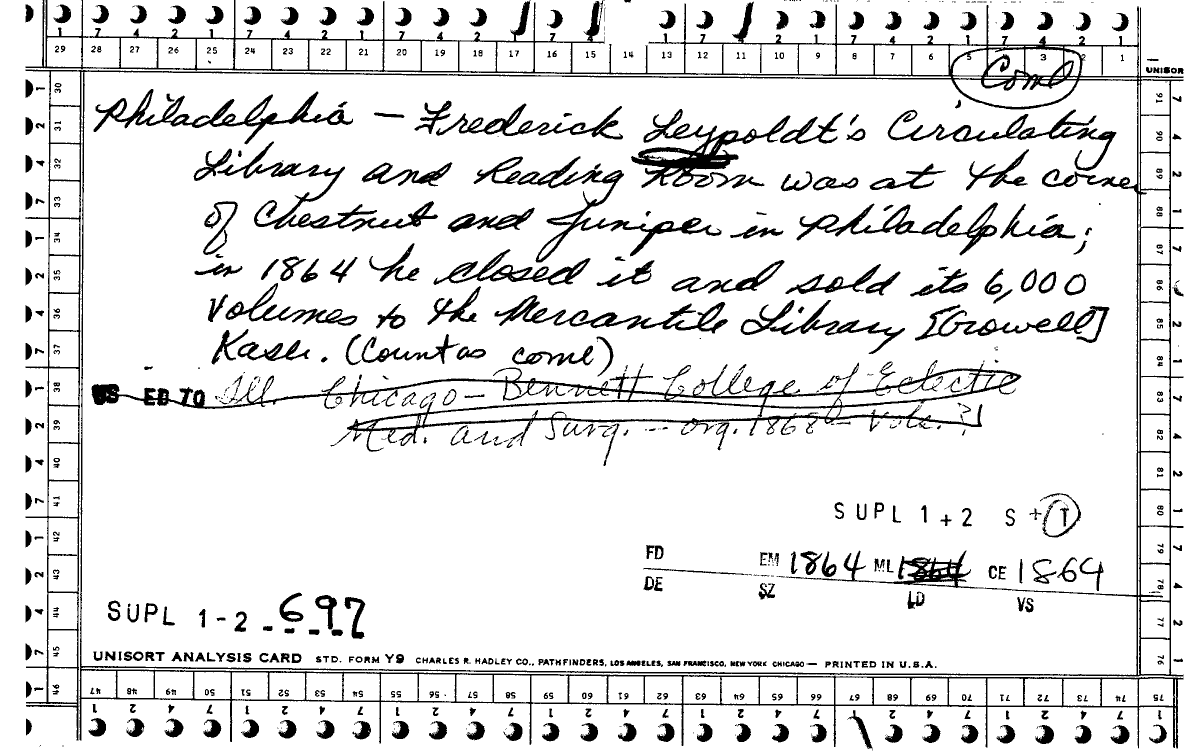 1 7 4 2 1 7 4 2 1 7 4 2 1 7 4 2 1 7 4 2 1 7 4 2 1
29 28 27 26 25 24 23 22 21 20 19 18 17 16 15 14 13 12 11 10 9 8 7 6 5 4 3 2 1
Coml
UNISOR
Philadelphia — Frederick Leypoldt's Circulating
Library and Reading Room was at the corner
of Chestnut and Juniper in Philadelphia;
in 1864 he closed it and sold its 6,000
volumes to the Mercantile Library [Growell]
Kaser. (Count as coml)
US ED TO Ill. Chicago — Bennett College of Eclectic
Med. and Surg. — org. 1868 — Vols. ?]
SUPL 1 + 2 S + T
FD EM 1864 ML 1864 CE 1864
DE SZ LD VS
SUPL 1-2 - 697
UNISORT ANALYSIS CARD STD. FORM Y9 CHARLES R. HADLEY CO., PATHFINDERS, LOS ANGELES, SAN FRANCISCO, NEW YORK CHICAGO — PRINTED IN U.S.A.
47 48 49 50 51 52 53 54 55 56 57 58 59 60 61 62 63 64 65 66 67 68 69 70 71 72 73 74 75